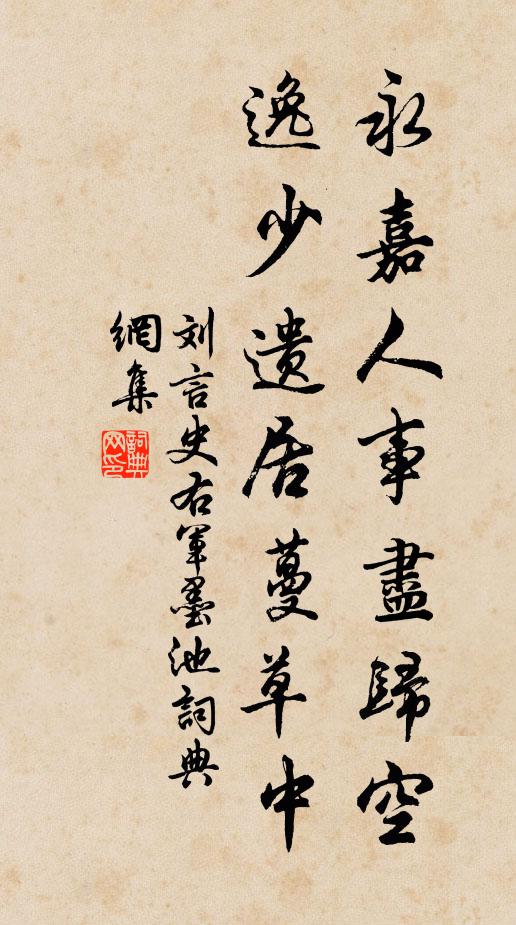 永嘉人事盡歸空
逸少遺居蔓草中
刘言史右軍墨池詞典
網集
詞典網印